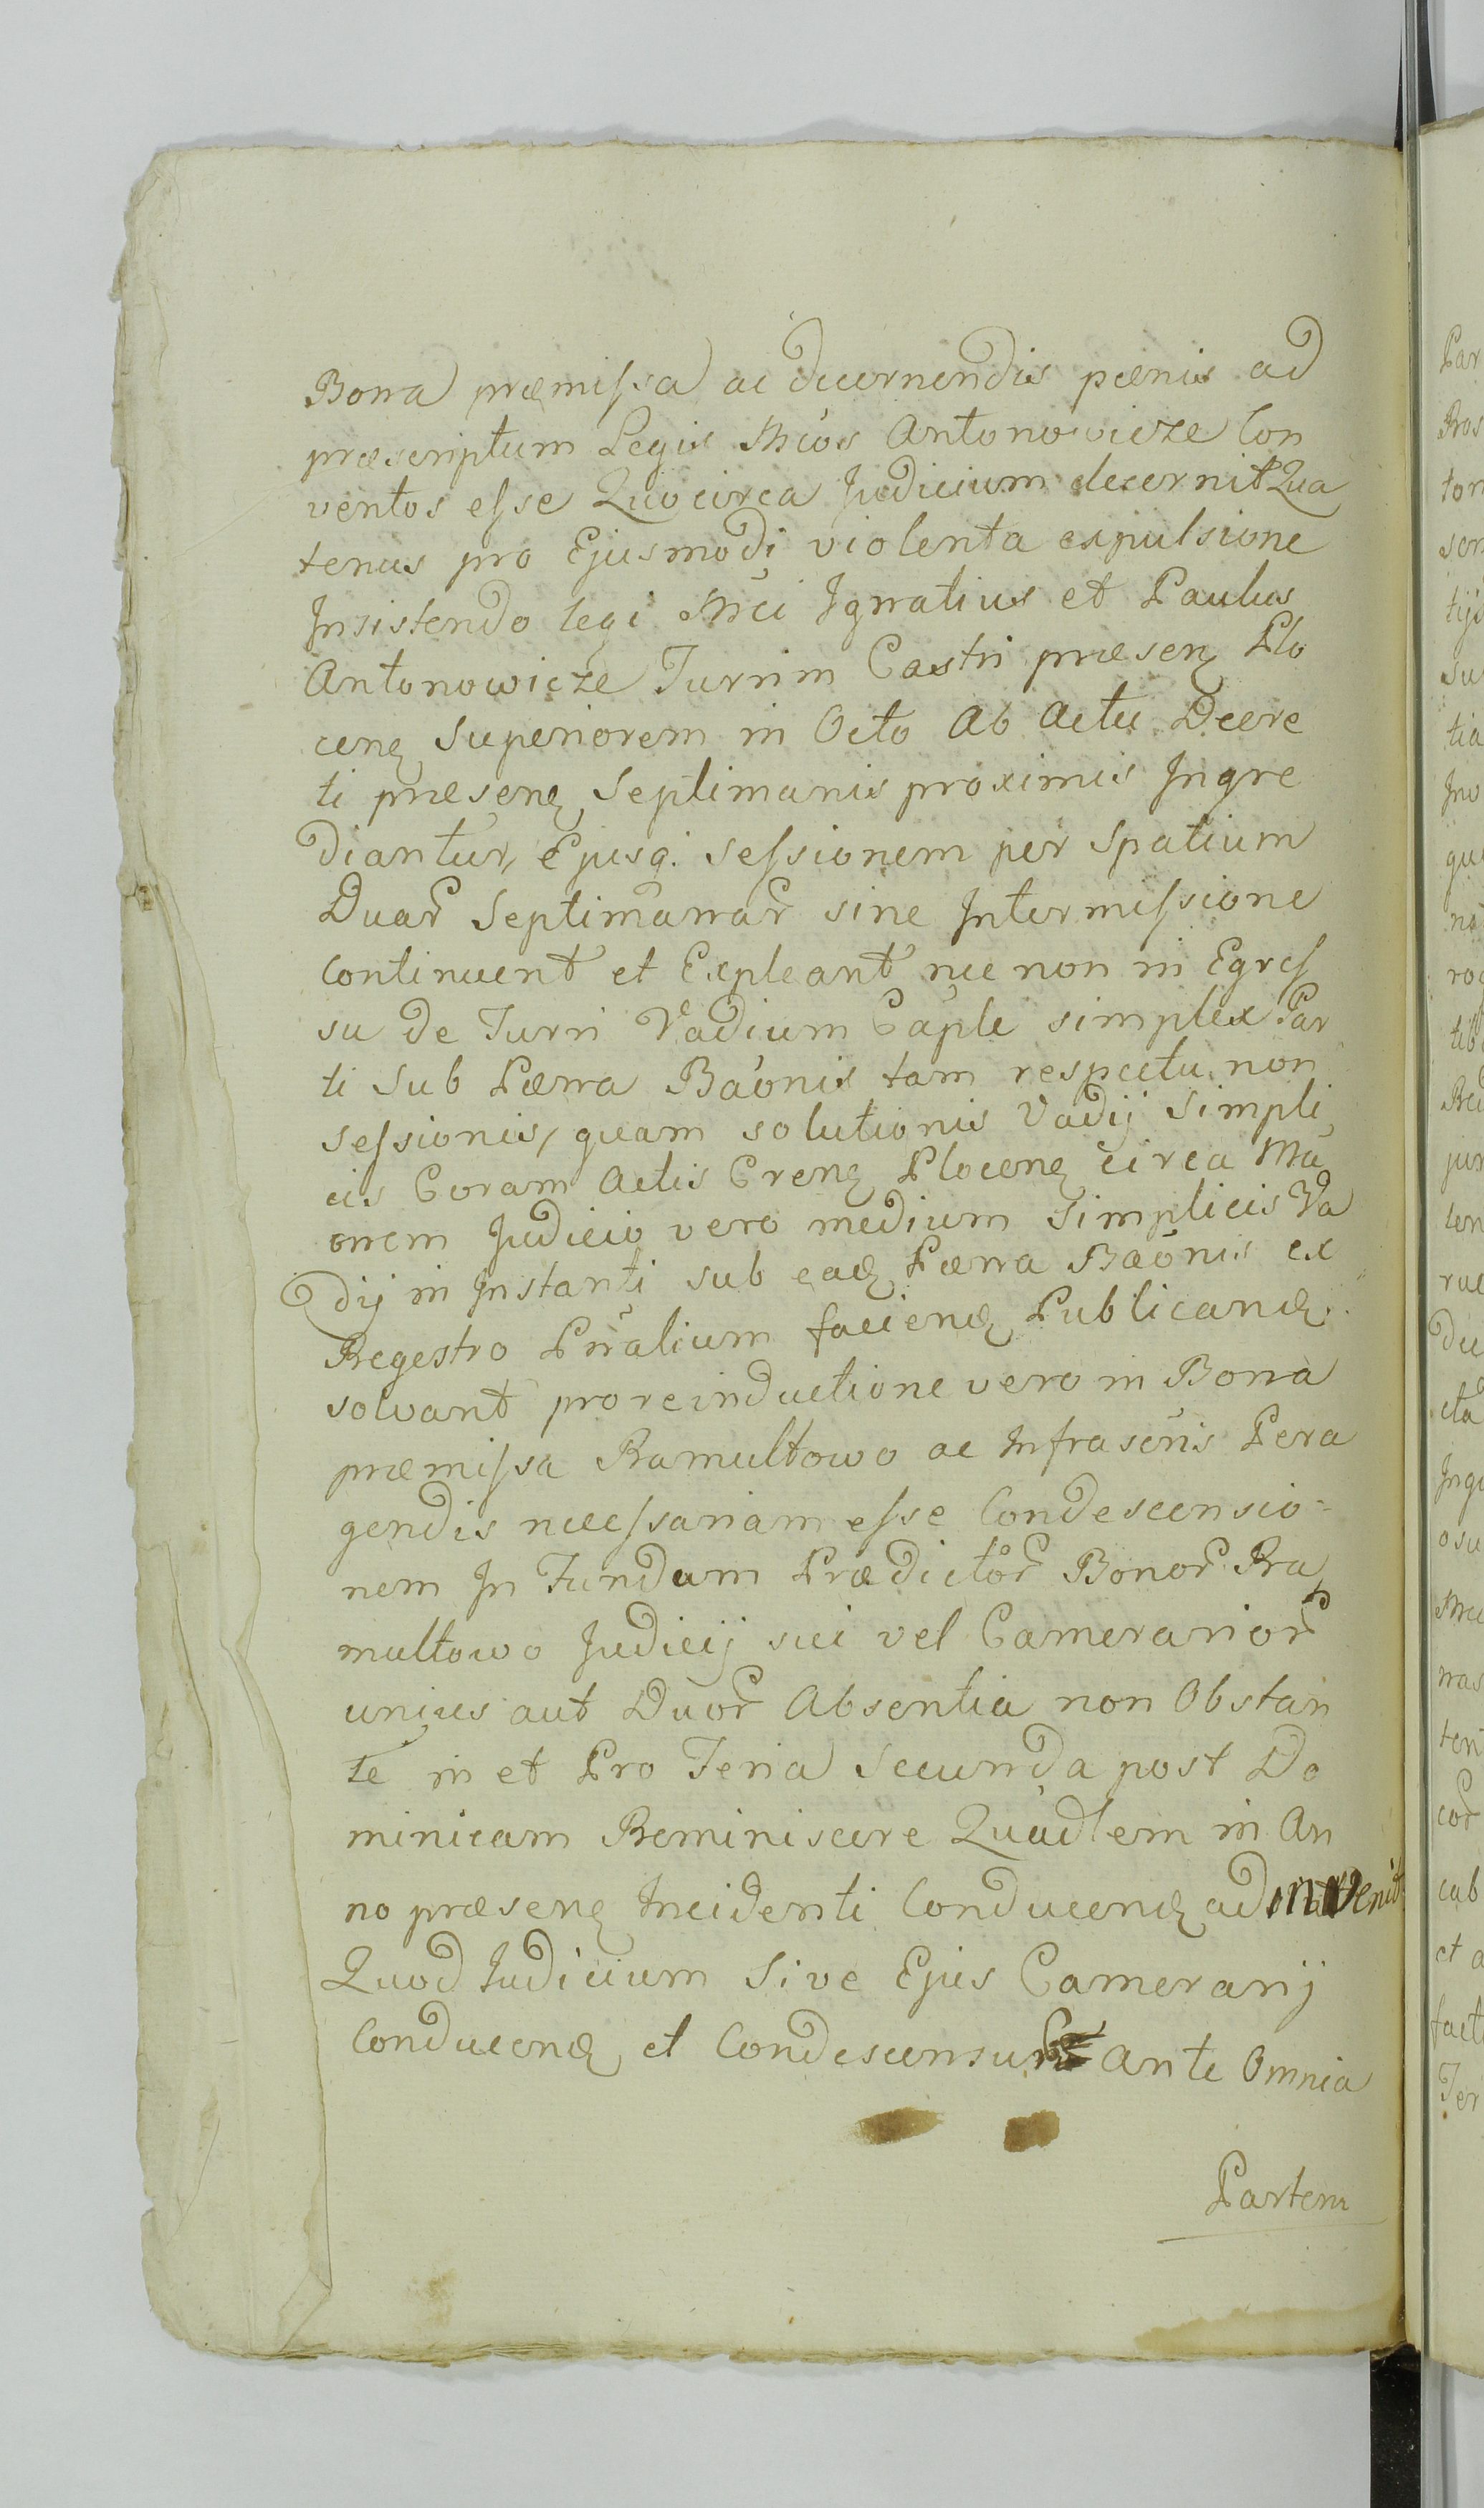 Bona præmissa ac decernendis pœnis ad
præscriptum Legis Mcos Antonowicze Con
ventos esse Quocirca Judicium decernit Qua
tenus pro Ejusmodi violenta expulsione
Insistendo legi Mci Ignatius et Paulus
Antonowicze Turrim Castri præsen Plo
cen Superiorem in Octo Ab Actu Decre
ti præsen Septimanis proximis Ingre
diantur, Ejusq. sessionem per Spatium
Duar Septimanar sine Intermissione
Continuent et Expleant nec non in Egres
su de Turri Vadium Caple simplex Par
ti Sub Pœna Baonis tam respectu non
sessionis, quam solutionis Vadij Simpli
cis Coram Actis Cren Plocen circa Ma
onem Judicio vero medium Simplicis Va
dij in Instanti sub ead Pœna Baonis ex
Regestro Pnalium faciend Publicand
solvant pro reinductione vero in Bona
præmissa Ramultowo ac Infrascris Pera
gendis necessariam esse Condescensio-
nem In Fundum Prædictor Bonor Ra
multowo Judicij sui vel Camerarior
unius aut Duor Absentia non Obstan
te in et Pro Feria Secunda post Do
minicam Reminiscere Quadlem in An
no præsen Incidenti Conducend adinvenit
Quod Judicium Sive Ejus Camerarij
Conducend et Condescensur Ante Omnia
Partem